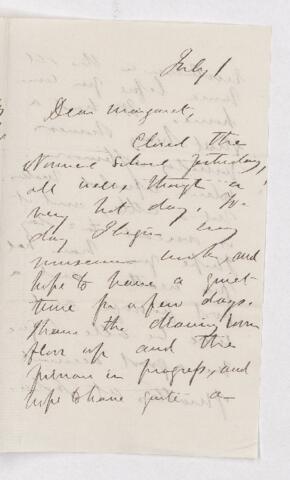 July 1
Dear Margaret,
Closed the
Normal School yesterday,
all well though a
very hot day. To-
day I begin my
museum work and
hope to have a quiet
time for a few days.
I have the drawing room
floor up and the
in progress, and
hope to have quite a